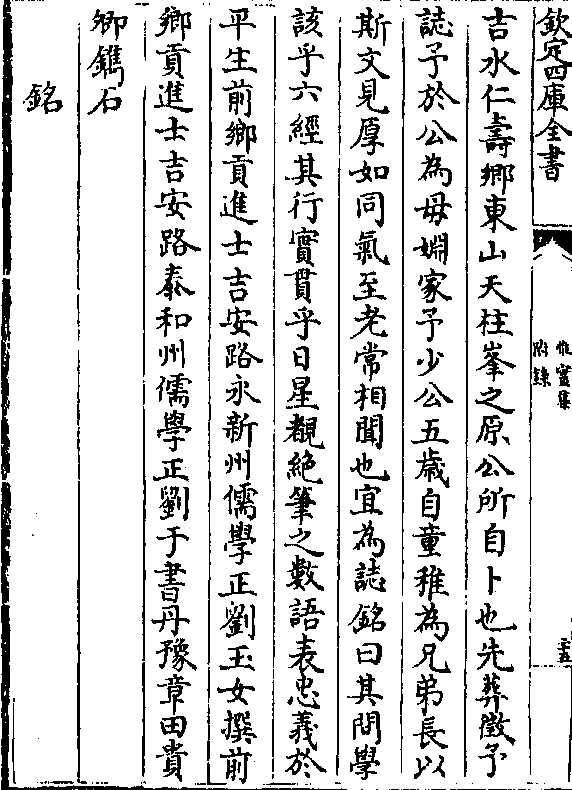 欽定四庫全書
惟實集
附錄
二十五
吉水仁壽鄉東山天柱峯之原公所自卜也先葬徵予
誌予於公為母婣家予少公五歲自童稚為兄弟長以
斯文見厚如同氣至老常相聞也宜為誌銘曰其問學
該乎六經其行實貫乎日星觀絶筆之數語表忠義於
平生前鄉貢進士吉安路永新州儒學正劉玉女撰前
鄉貢進士吉安路泰和州儒學正劉于書丹豫章田貴
卿鐫石
銘